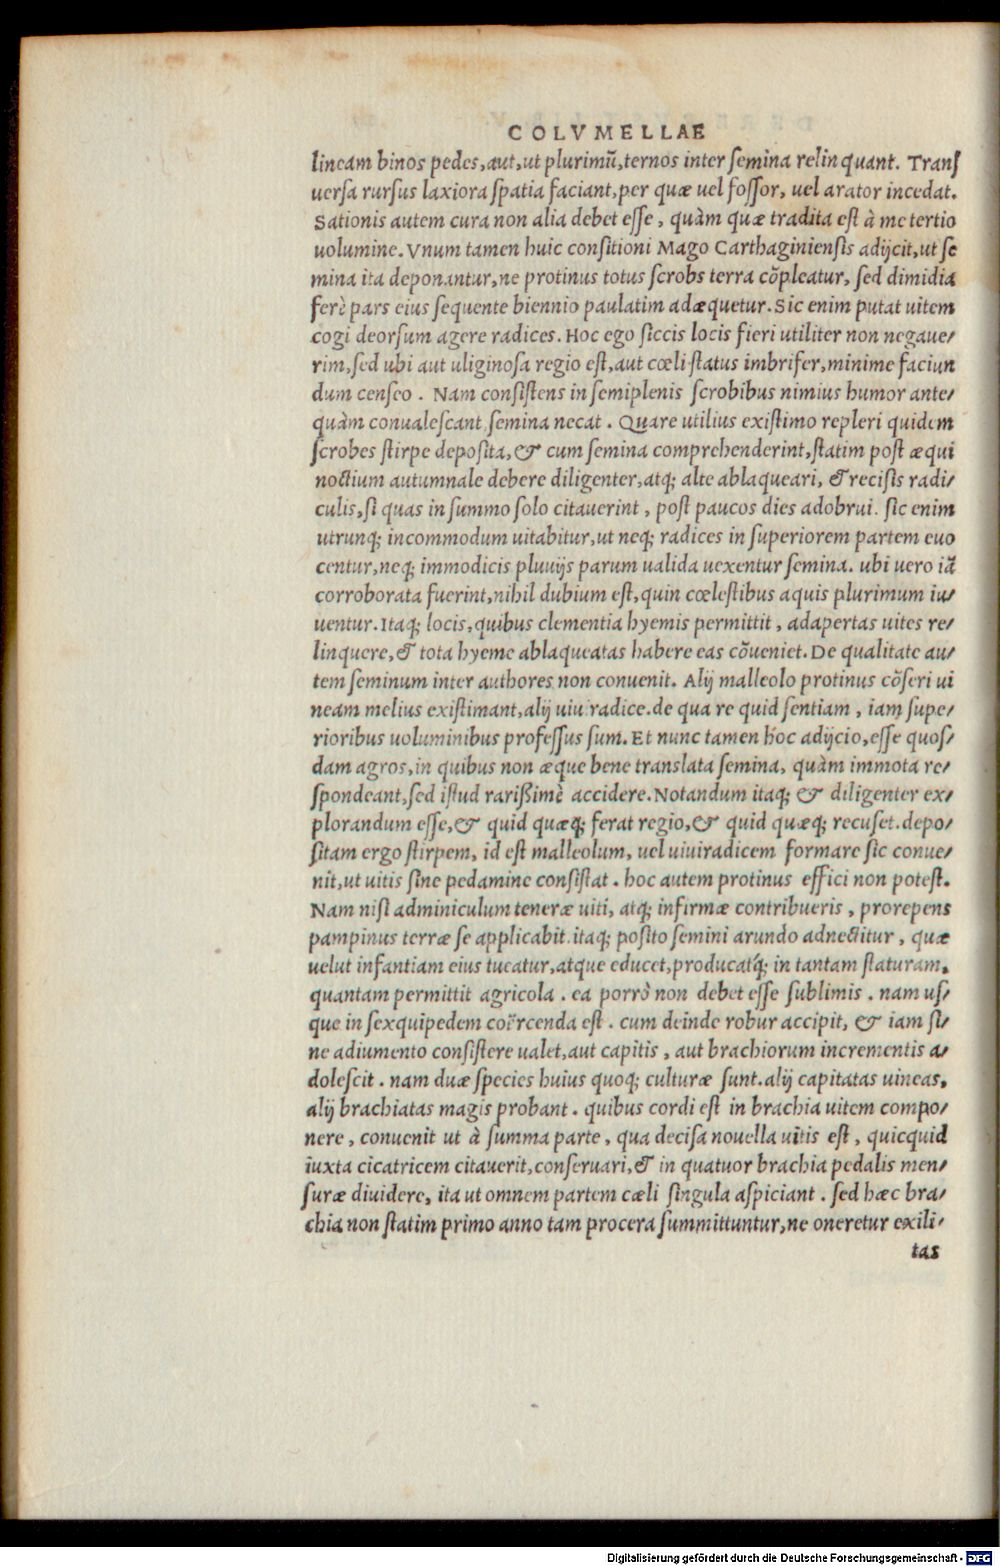 COLVMELLAE
lineam binos pedes, aut, ut plurimũ, ternos inter semina relinquant. Transſ
uersa rursus laxiora spatia faciant, per quæ uel fossor, uel arator incedat.
Sationis autem cura non alia debet esse, quàm quæ tradita est à me tertio
uolumine. Vnum tamen huic consitioni Mago Carthaginiensis adijcit, ut se
mina ita deponantur, ne protinus totus scrobs terra cõpleatur, sed dimidia
ferè pars eius sequente biennio paulatim adæquetur. Sic enim putat uitem
cogi deorsum agere radices. Hoc ego siccis locis fieri utiliter non negaue/
rim, sed ubi aut uliginosa regio est, aut cœli status imbrifer, minime faciun
dum censeo. Nam consistens in semiplenis scrobibus nimius humor ante/
quàm conualescant semina necat. Quare utilius existimo repleri quidem
scrobes stirpe deposita, & cum semina comprehenderint, statim post æqui
noctium autumnale debere diligenter, atq; alte ablaqueari, & recisis radi/
culis, si quas in summo solo citauerint, post paucos dies adobrui. sic enim
utrunq; incommodum uitabitur, ut neq; radices in superiorem partem euo
centur, neq; immodicis pluuijs parum ualida uexentur semina. ubi uero iã
corroborata fuerint, nihil dubium est, quin cœlestibus aquis plurimum iu/
uentur. Itaq; locis, quibus clementia hyemis permittit, adapertas uites re/
linquere, & tota hyeme ablaqueatas habere eas cõueniet. De qualitate au/
tem seminum inter authores non conuenit. Alij malleolo protinus cõseri ui
neam melius existimant, alij uiuiradice. de qua re quid sentiam, iam supe/
rioribus uoluminibus professus sum. Et nunc tamen hoc adijcio, esse quos/
dam agros, in quibus non æque bene translata semina, quàm immota re/
spondeant, sed istud rarißimè accidere. Notandum itaq; & diligenter ex/
plorandum esse, & quid quæq; ferat regio, & quid quæq; recuset. depo/
sitam ergo stirpem, id est malleolum, uel uiuiradicem formare sic conue/
nit, ut uitis sine pedamine consistat. hoc autem protinus effici non potest.
Nam nisi adminiculum teneræ uiti, atq; infirmæ contribueris, prorepens
pampinus terræ se applicabit. itaq; posito semini arundo adnectitur, quæ
uelut infantiam eius tueatur, atque educet, producatq́; in tantam staturam,
quantam permittit agricola. ea porrò non debet esse sublimis. nam us/
que in sexquipedem coërcenda est. cum deinde robur accipit, & iam si/
ne adiumento consistere ualet, aut capitis, aut brachiorum incrementis a/
dolescit. nam duæ species huius quoq; culturæ sunt. alij capitatas uineas,
alij brachiatas magis probant. quibus cordi est in brachia uitem compo/
nere, conuenit ut à summa parte, qua decisa nouella uitis est, quicquid
iuxta cicatricem citauerit, conseruari, & in quatuor brachia pedalis men/
suræ diuidere, ita ut omnem partem cæli singula aspiciant. sed hæc bra/
chia non statim primo anno tam procera summittuntur, ne oneretur exili/
tas
Digitalisierung gefördert durch die Deutsche Forschungsgemeinschaft - DFG